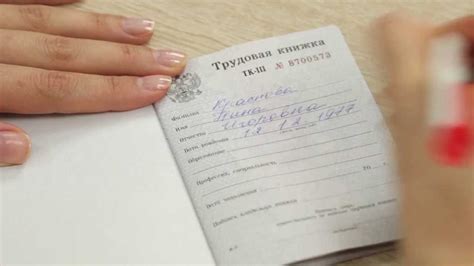 Трудовая книжка
ТК-III № 8700573
Фамилия Краснова
Имя Нина
Отчество Игоровна
Дата рождения 12.12.1977
Образование
Профессия, специальность
Дата заполнения
Подпись владельца книжки